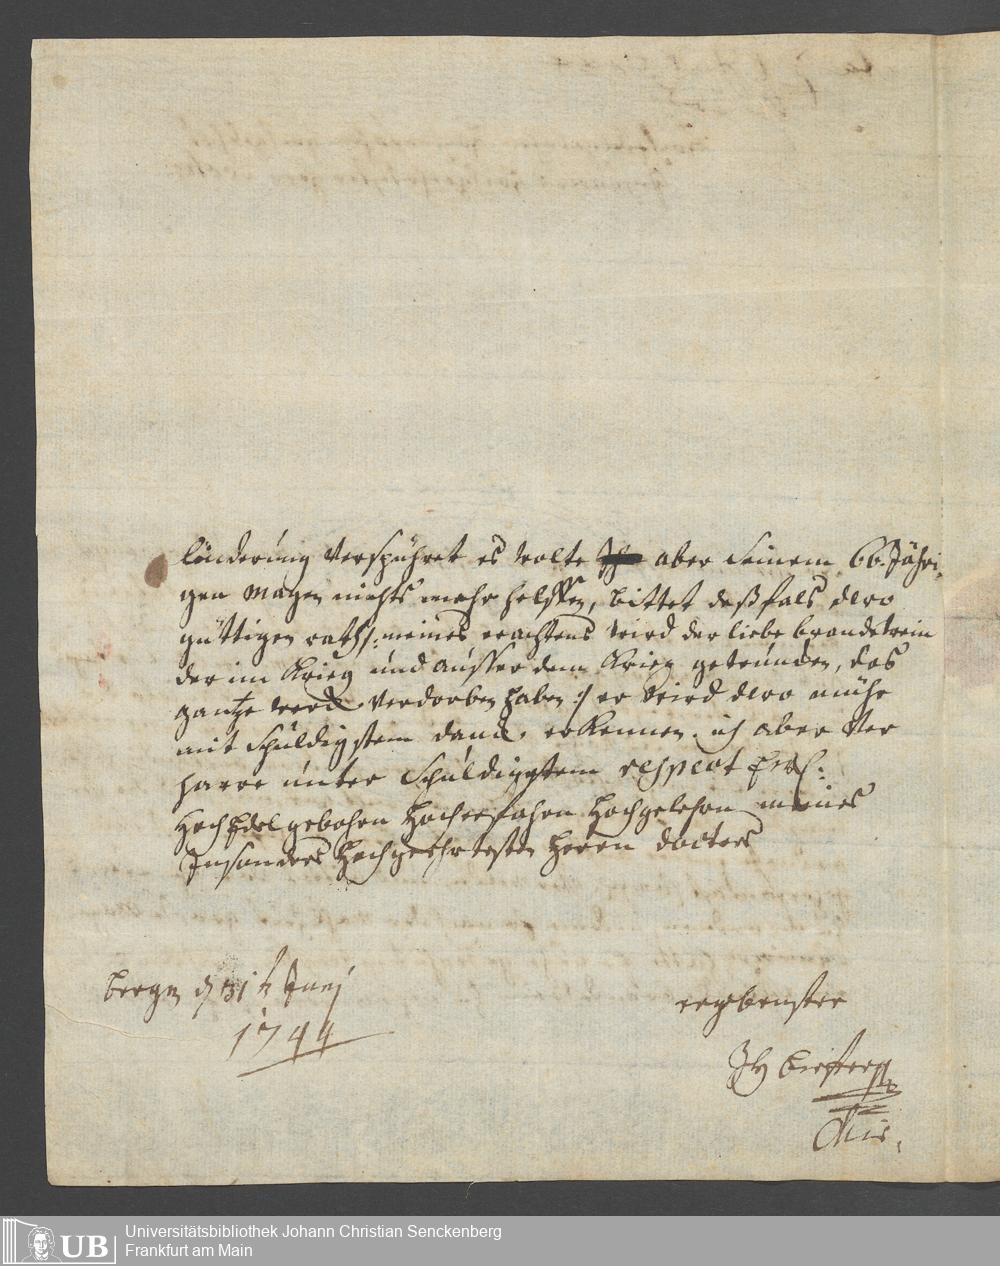 länderung verspühret es wolte aber seinem 66. Jähri,
gen magen nichts mehr helffen, bittet deßfals dero
güttigen rath /: meines erachtens wird der liebe brandtwein
der im Krieg und ausser dem Krieg getruncken, das
gantze werck verdorben haben :/ er wird dero mühe
mit schuldigstem danck erkennen. ich aber ver
harre unter schuldigstem respect Ew:
HochEdelgebohrn Hocherfahrn Hochgelehrn meines
Insonders Hochgeehrtesten Herrn doctors
bergen d 31 t Junj
1744
ergebenster
Chir.
UB
Universitätsbibliothek Johann Christian Senckenberg
Frankfurt am Main